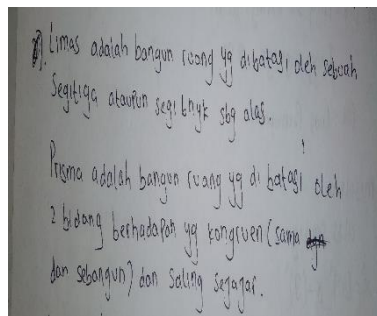 Limas adalah bangun ruang yg dibatasi oleh sebuah
Segitiga ataupun segi bnyk sbg alas.
Prisma adalah bangun ruang yg di batasi oleh
2 bidang berhadapan yg kongruen (sama
dan sebangun) dan saling sejajar.